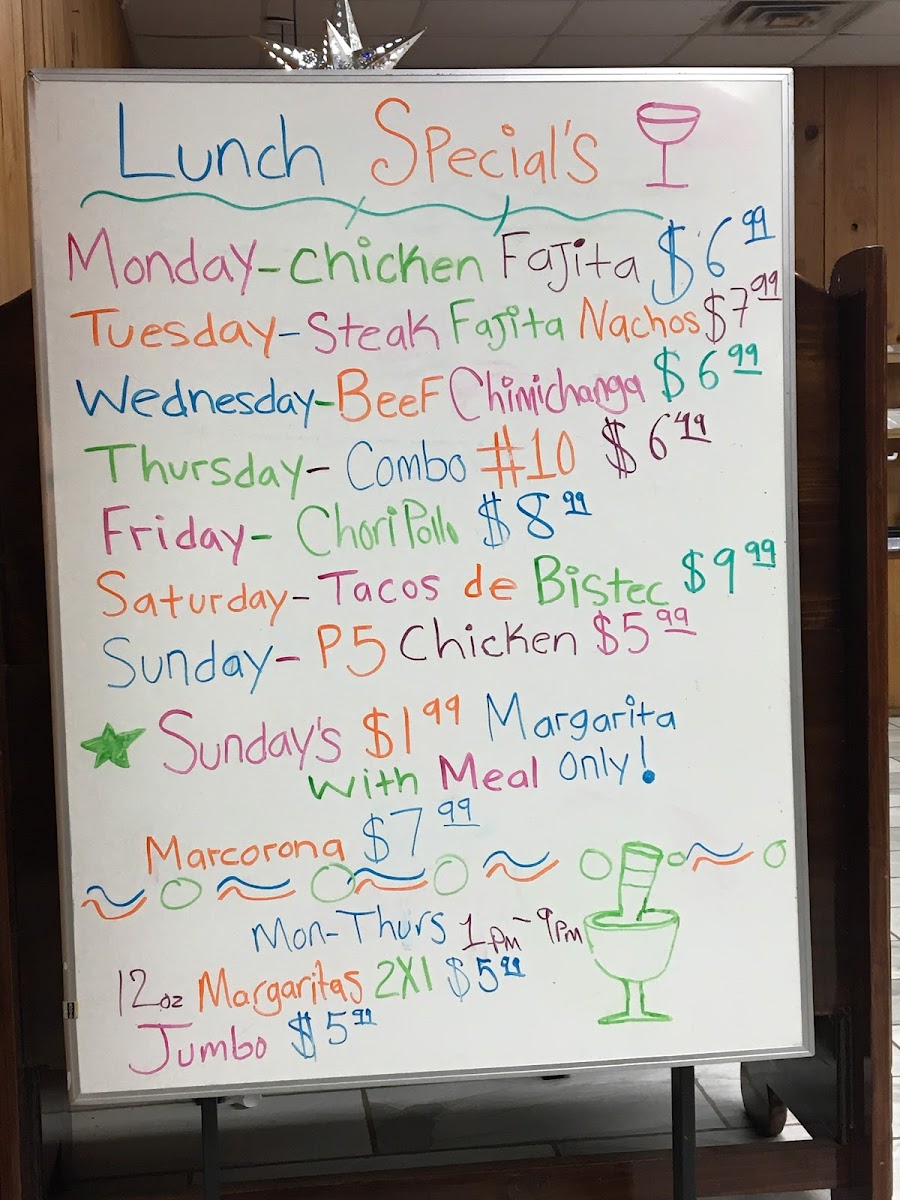 Lunch Special's
Monday-Chicken Fajita $6 99
Tuesday-Steak Fajita Nachos $7 99
Wednesday-Beef Chimichanga $6 99
Thursday- Combo #10 $6 99
Friday- ChoriPollo $8 99
Saturday-Tacos de Bistec $9 99
Sunday- P5 Chicken $5 99
Sunday's $1 99 Margarita
With Meal only!
Marcorona $7 99
Mon-Thurs 1pm-9pm
12oz Margaritas 2X1 $5 99
Jumbo $5 99